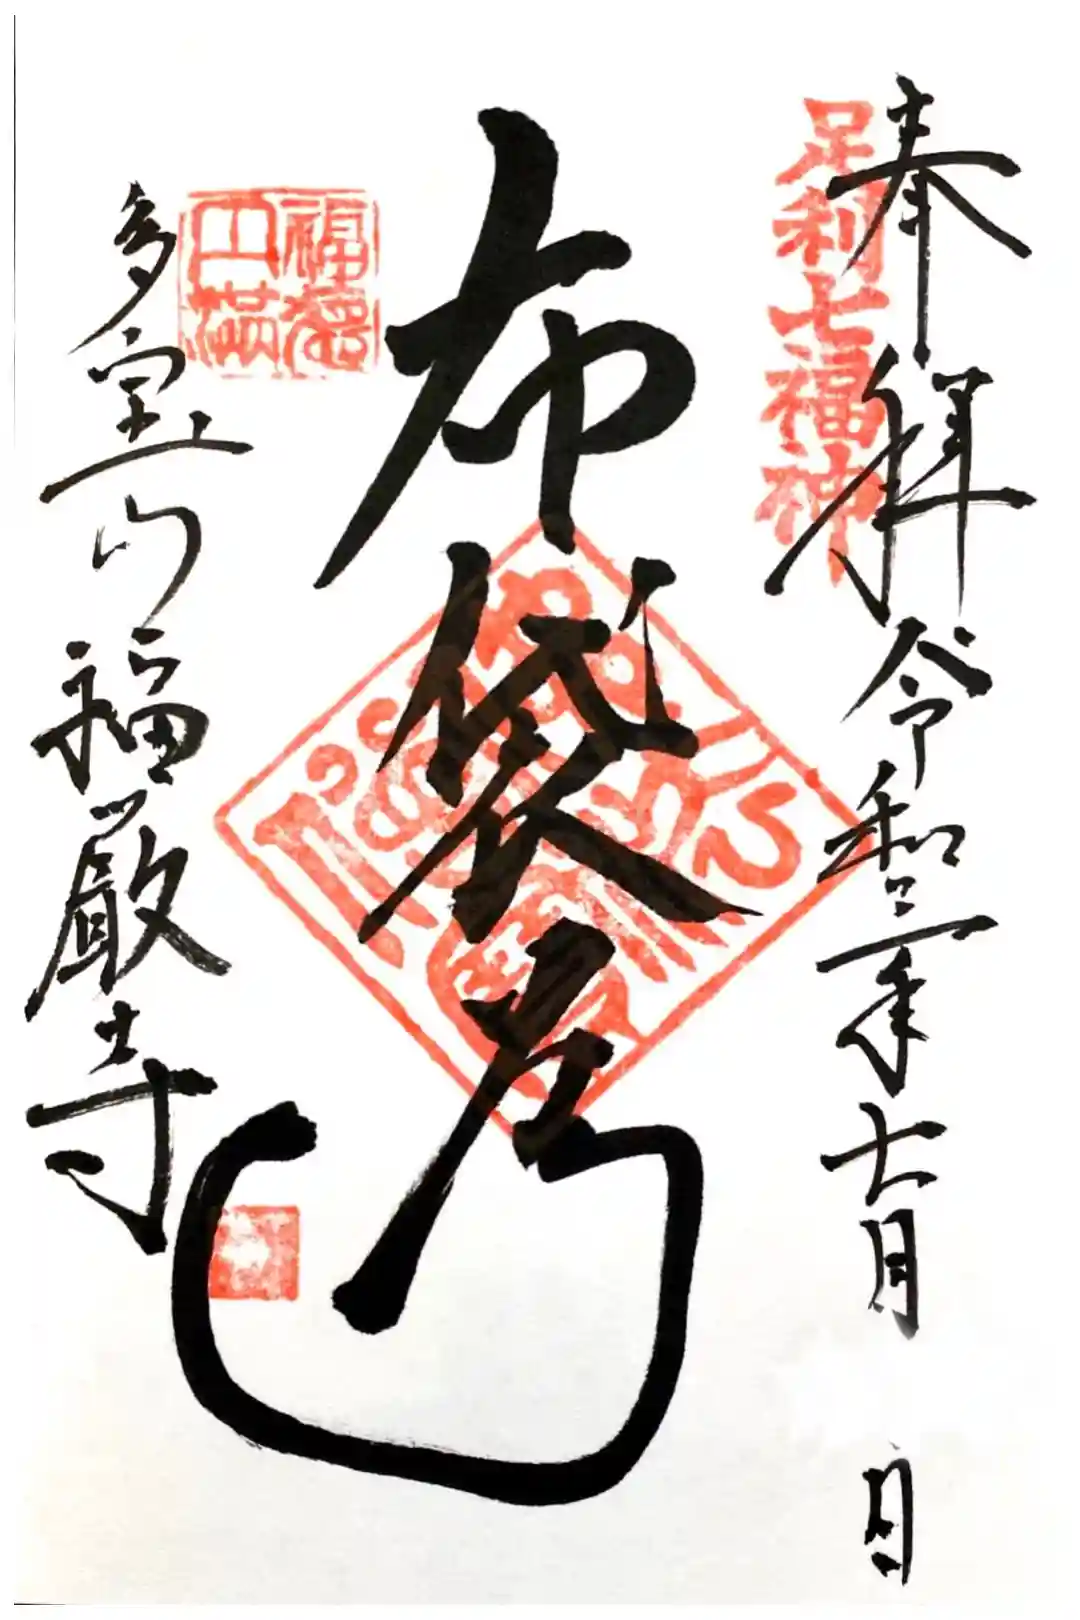 奉拝 令和三年七月 日
足利七福神
布袋尊
福徳
円満
多宝山 福厳寺